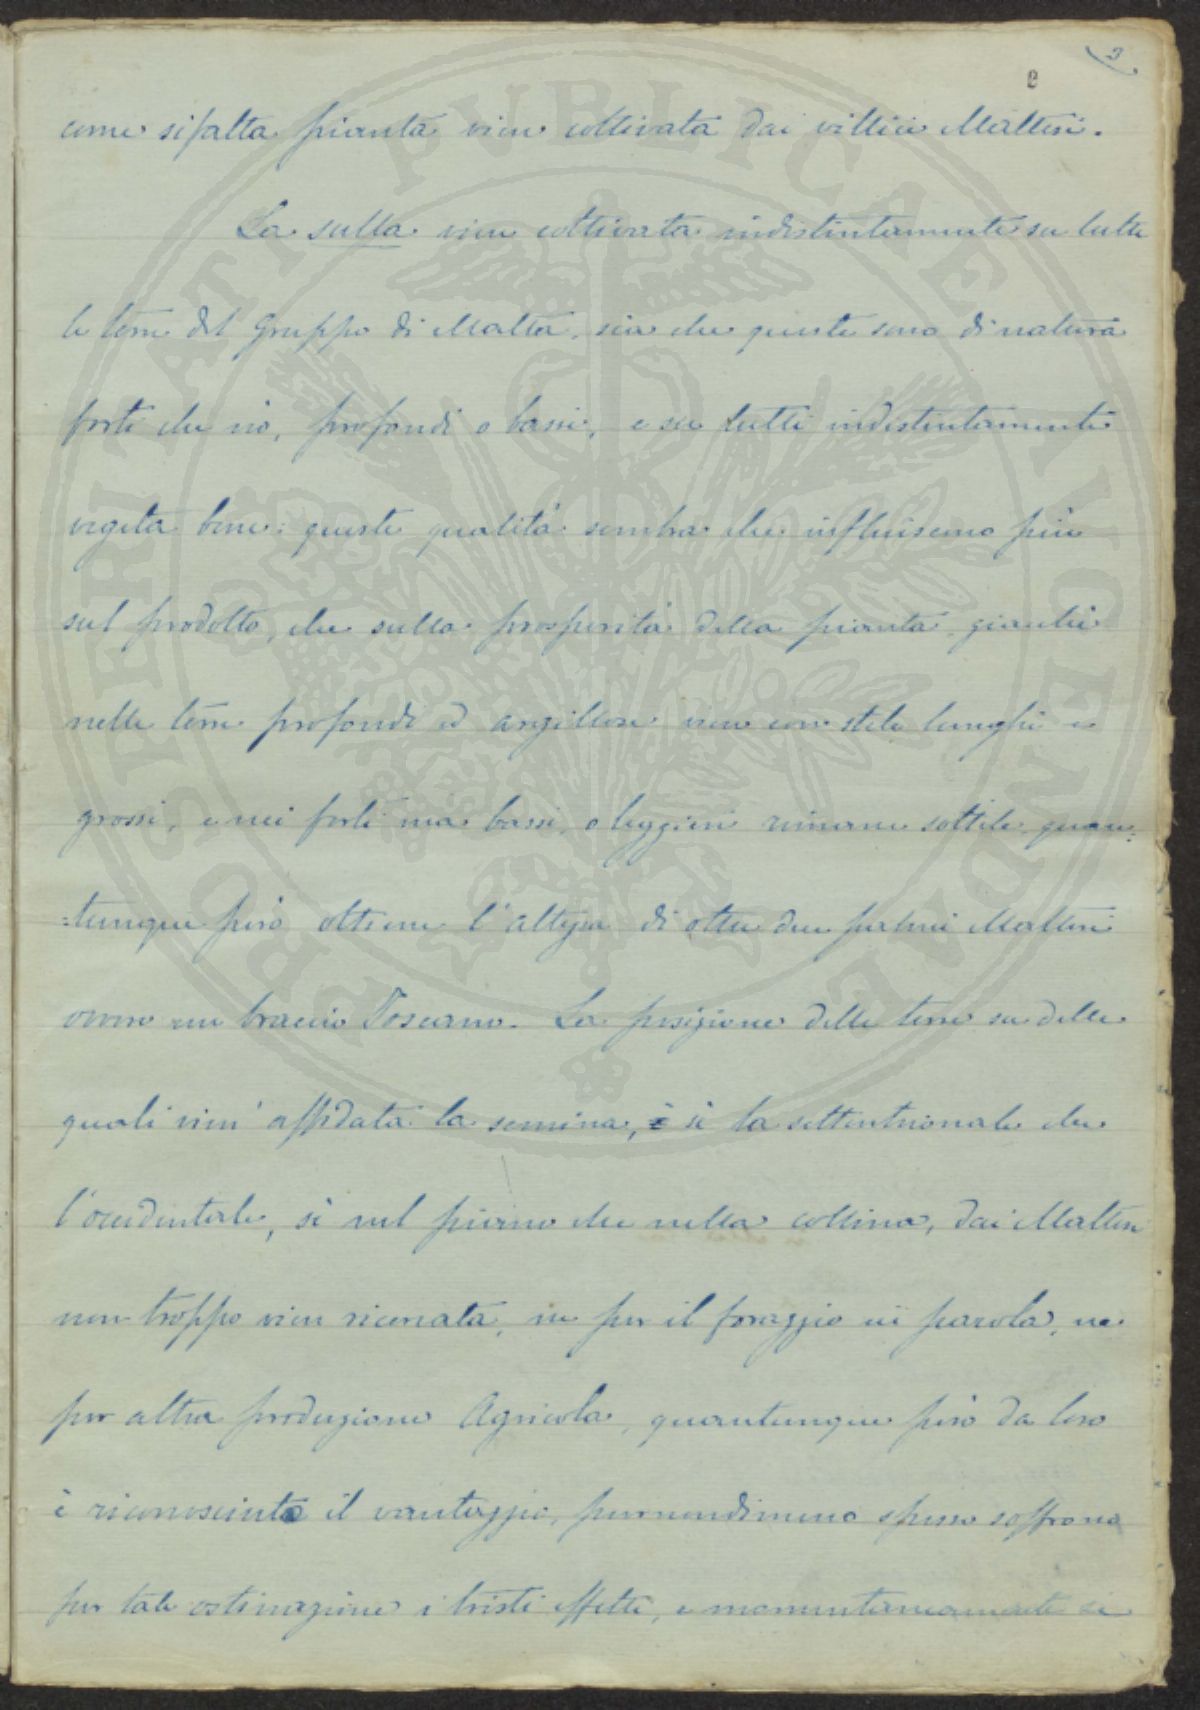 3
2
come sifatta pianta vien coltivata dai villici Maltesi.
La sulla vien coltivata indistintamente su tutte
le terre del Gruppo di Malta, sia che queste sono di natura
forti che nò, profondi o bassi, e su tutti indistintamente
vegeta bene: queste qualità sembra che influiscono più
sul prodotto, che sulla prosperità della pianta, giacchè
nelle terre profondi ed argillose vien con stele lunghi e
grossi, e nei forti ma bassi, o leggieri rimane sottile, quan=
=tunque però ottiene l'altezza di oltre due palmi Maltesi
ovvero un braccio Toscano. La posizione delle terre su delle
quali vien' affidata la semina, è sì la settentrionale che
l'occidentale, sì nel piano che nella collina, dai Maltesi
non troppo vien ricercata, ne per il foraggio in parola, ne
per altra produzione Agricola, quantunque però da loro
è riconosciuto il vantaggio, purnondimeno spesso soffrono
per tale ostinazione i tristi effetti, e momentaneamente si
PROSPERITATI PUBLICAE AUGENDAE